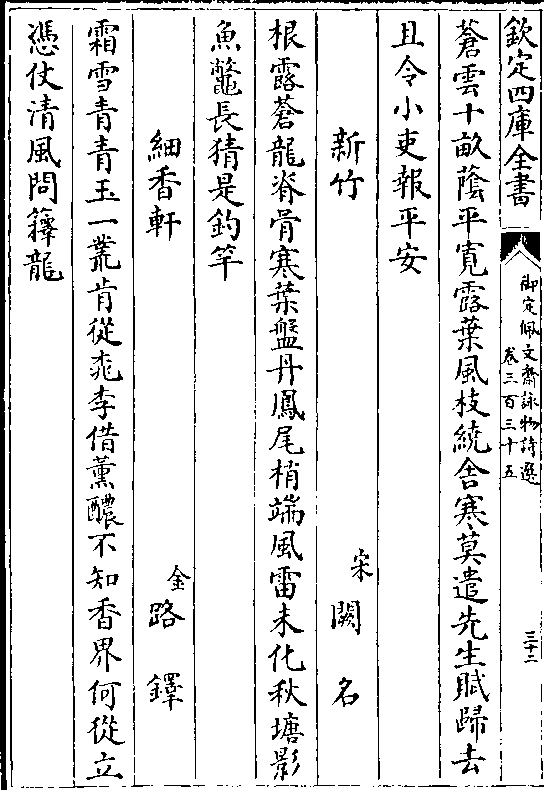 欽定四庫全書
御定佩文齋詠物詩選
卷三百三十五
三十二
蒼雲十畝蔭平寛露葉風枝繞舎寒莫遣先生賦歸去
且令小吏報平安
新竹
宋闕名
根露蒼龍脊骨寒葉盤丹鳳尾梢端風雷未化秋塘影
魚鼈長猜是釣竿
細香軒
金路鐸
霜雪青青玉一叢肯從桃李借薰醲不知香界何從立
憑仗清風問籜龍